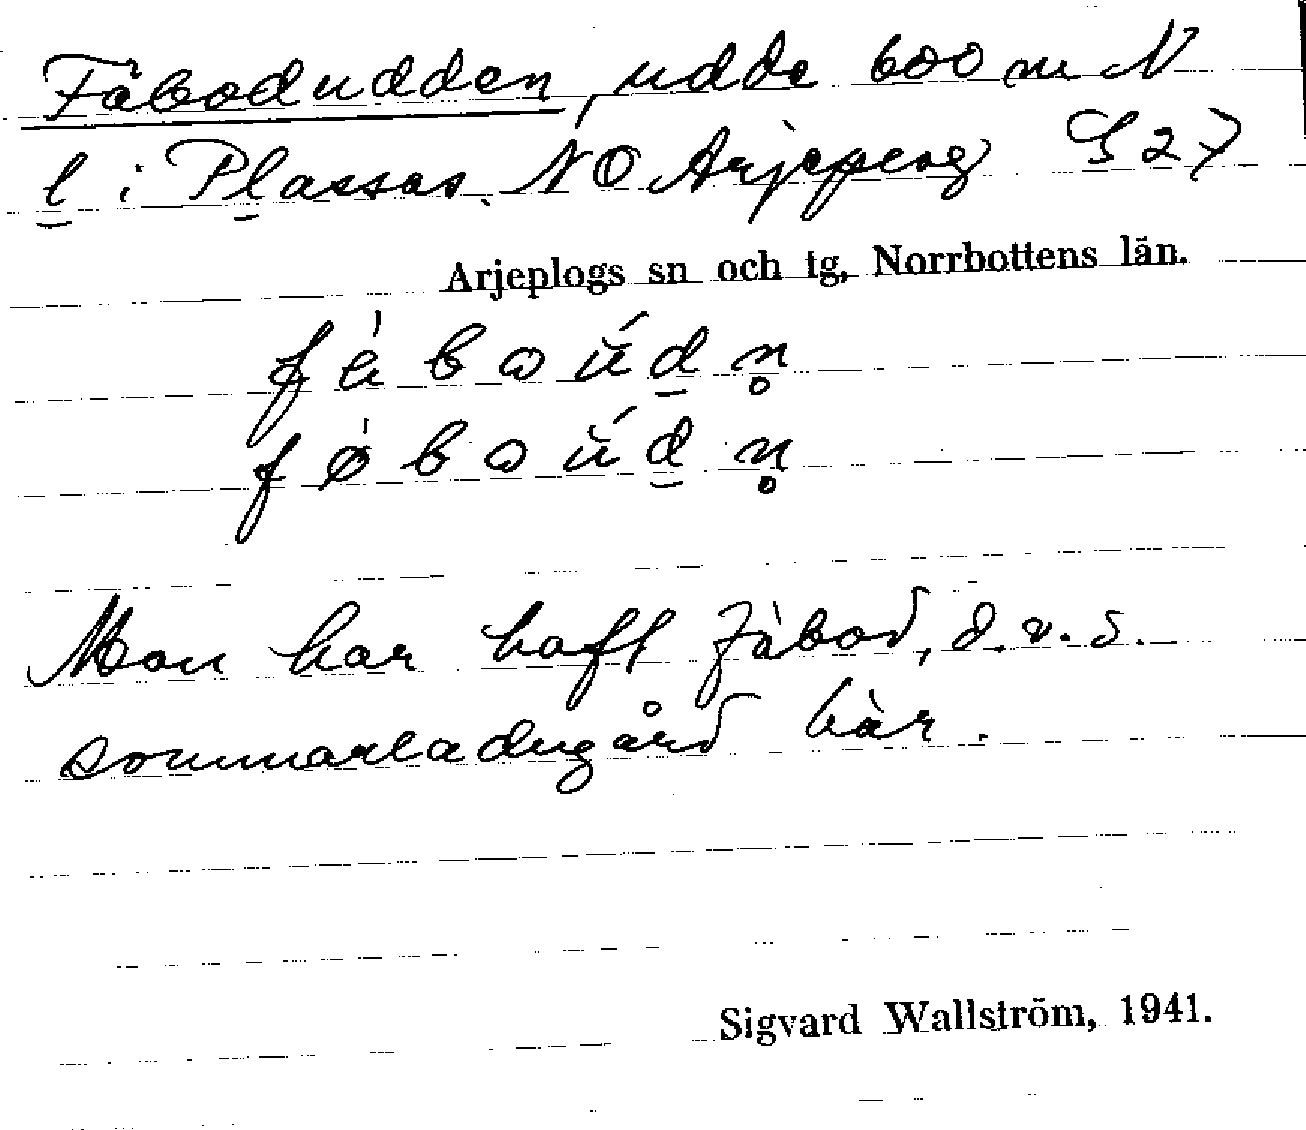 Fäbodudden, udde 600 m N
l i Plassas. NO Arjeplog S 27
Arjeplogs sn och tg, Norrbottens län.
Man har haft fäbod, d.v.s.
sommarladugård här.
Sigvard Wallström, 1941.